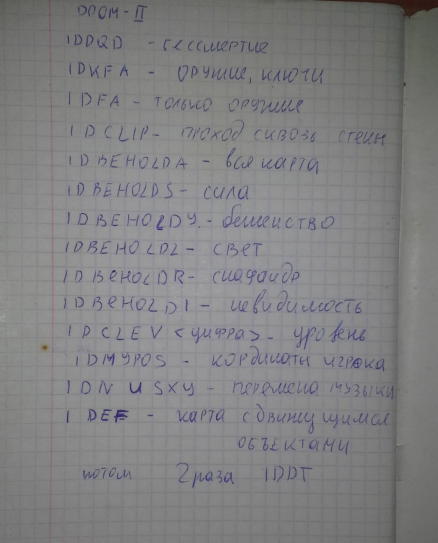 DOOM-II
IDDQD - бессмертие
IDKFA - оружие, ключи
IDFA - только оружие
IDCLIP - проход сквозь стены
IDBEHOLDA - вся карта
IDBEHOLDS - сила
IDBEHOLDY - бешенство
IDBEHOLDL - свет
IDBEHOLDR - скафандр
IDBEHOLDI - невидимость
IDCLEV <цифра> - уровень
IDMYPOS - кординаты игрока
IDNUSXY - перемена музыки
IDEF - карта с движущимися
объектами
потом 2 раза IDDT